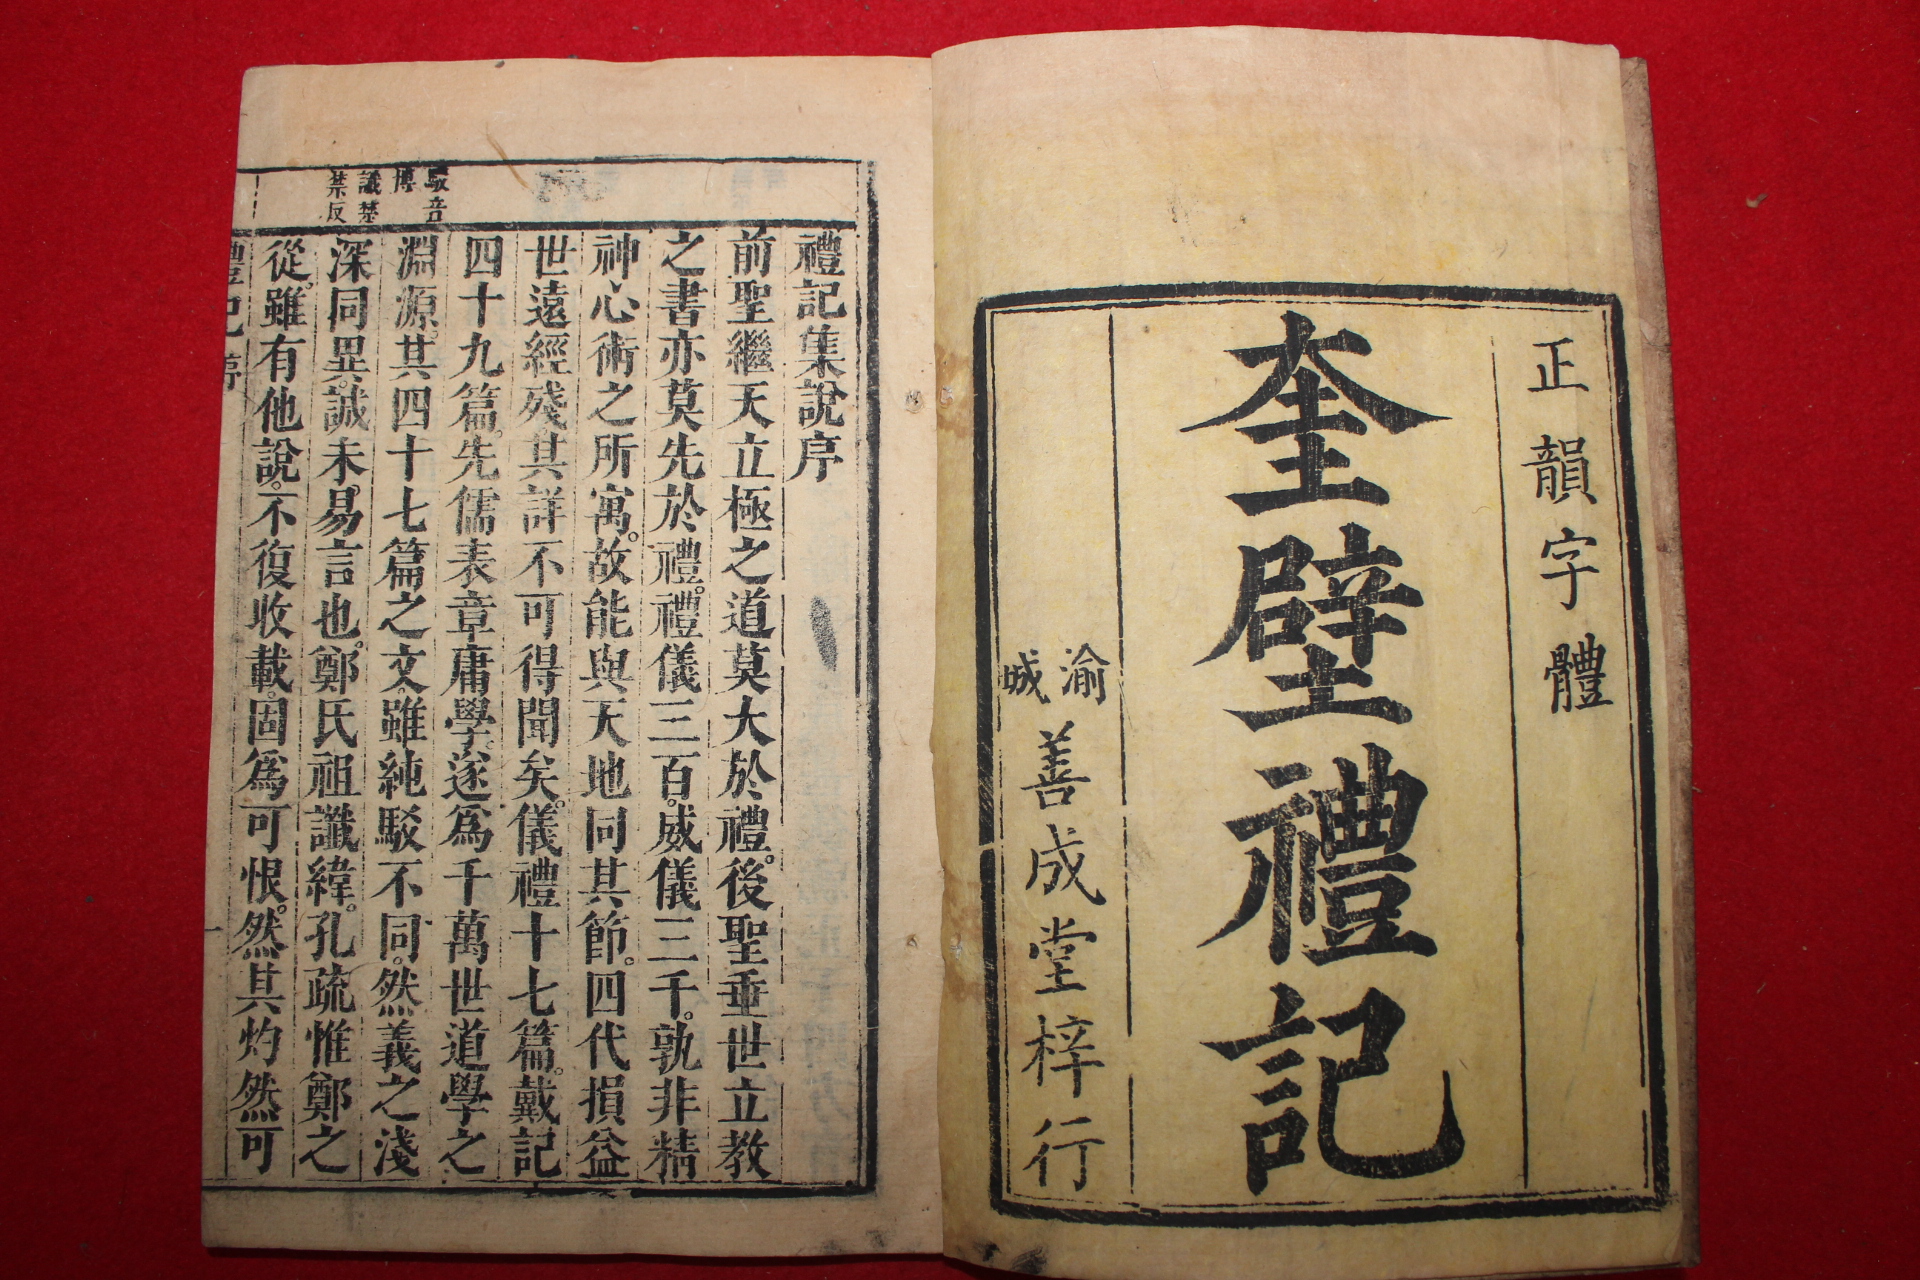 正韻字體
奎壁禮記
渝城
善成堂梓行
駁音
博
讖楚
禁反
禮記集說序
前聖繼天立極之道莫大於禮。後聖垂世立教
之書亦莫先於禮。禮儀三百。威儀三千。孰非精
神心術之所寓。故能與天地同其節。四代損益
世遠經殘其詳不可得聞矣。儀禮十七篇。戴記
四十九篇。先儒表章庸學。遂爲千萬世道學之
淵源。其四十七篇之文。雖純駁不同。然義之淺
深同異。誠未易言也。鄭氏祖讖緯。孔疏惟鄭之
從。雖有他說。不復收載。固爲可恨。然其灼然可
禮記 序 一